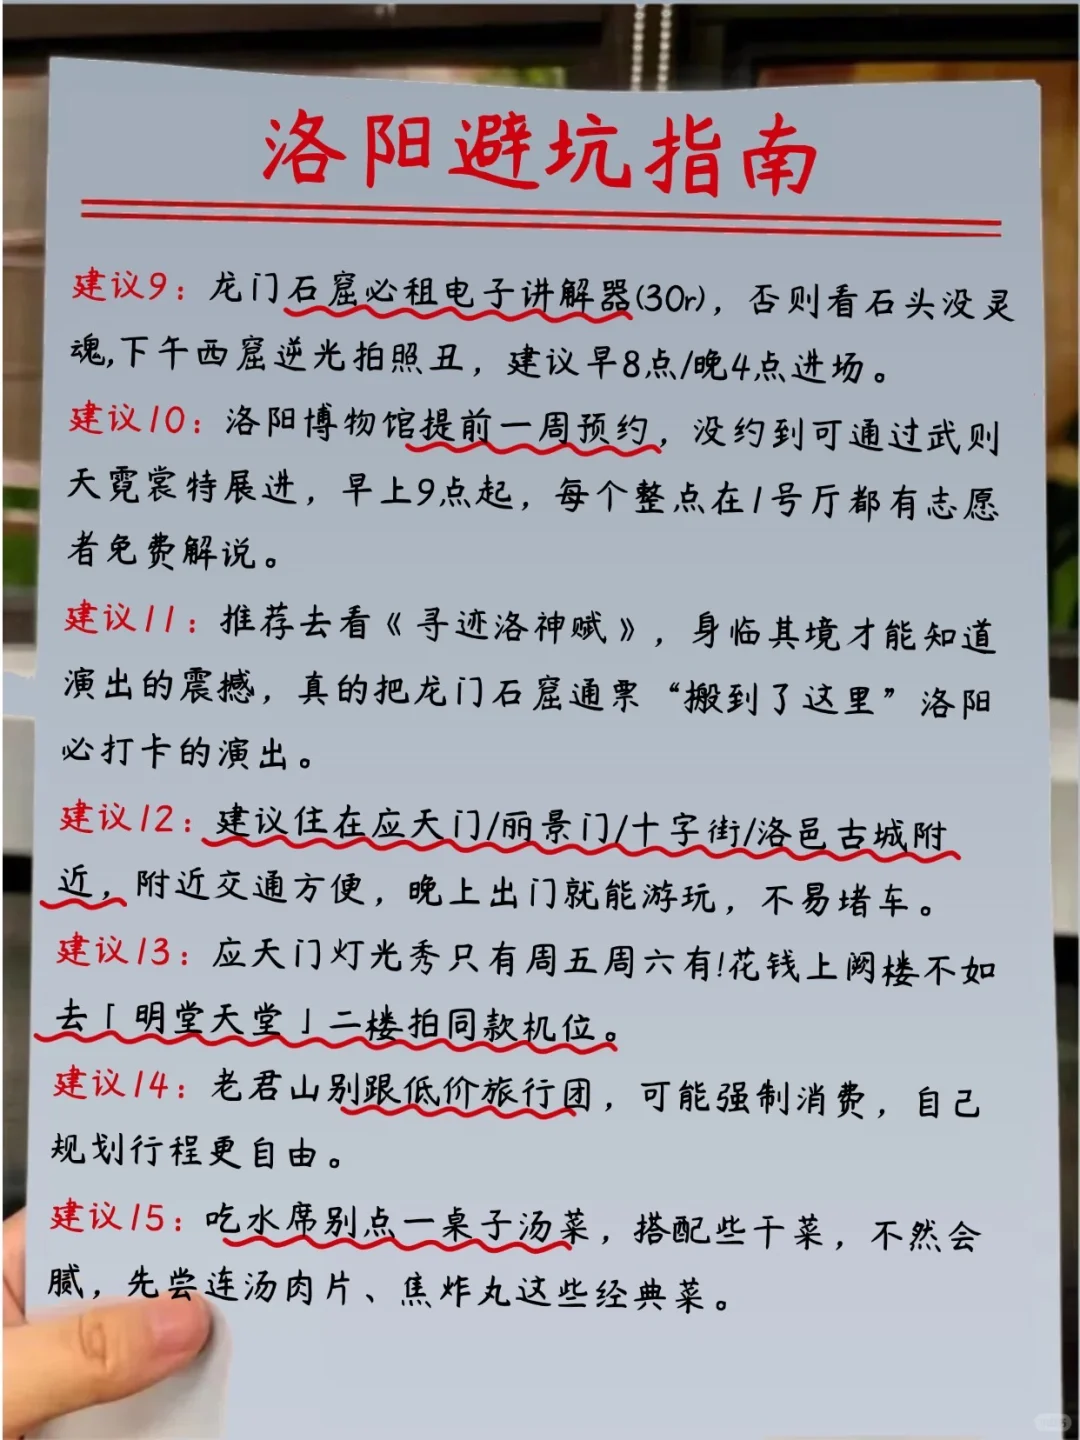 洛阳避坑指南
建议9：龙门石窟必租电子讲解器(30r)，否则看石头没灵
魂,下午西窟逆光拍照丑，建议早8点/晚4点进场。
建议10：洛阳博物馆提前一周预约，没约到可通过武则
天霓裳特展进，早上9点起，每个整点在1号厅都有志愿
者免费解说。
建议11：推荐去看《寻迹洛神赋》，身临其境才能知道
演出的震撼，真的把龙门石窟通票“搬到了这里”洛阳
必打卡的演出。
建议12：建议住在应天门/丽景门/十字街/洛邑古城附
近，附近交通方便，晚上出门就能游玩，不易堵车。
建议13：应天门灯光秀只有周五周六有!花钱上阙楼不如
去「明堂天堂」二楼拍同款机位。
建议14：老君山别跟低价旅行团，可能强制消费，自己
规划行程更自由。
建议15：吃水席别点一桌子汤菜，搭配些干菜，不然会
腻，先尝连汤肉片、焦炸丸这些经典菜。